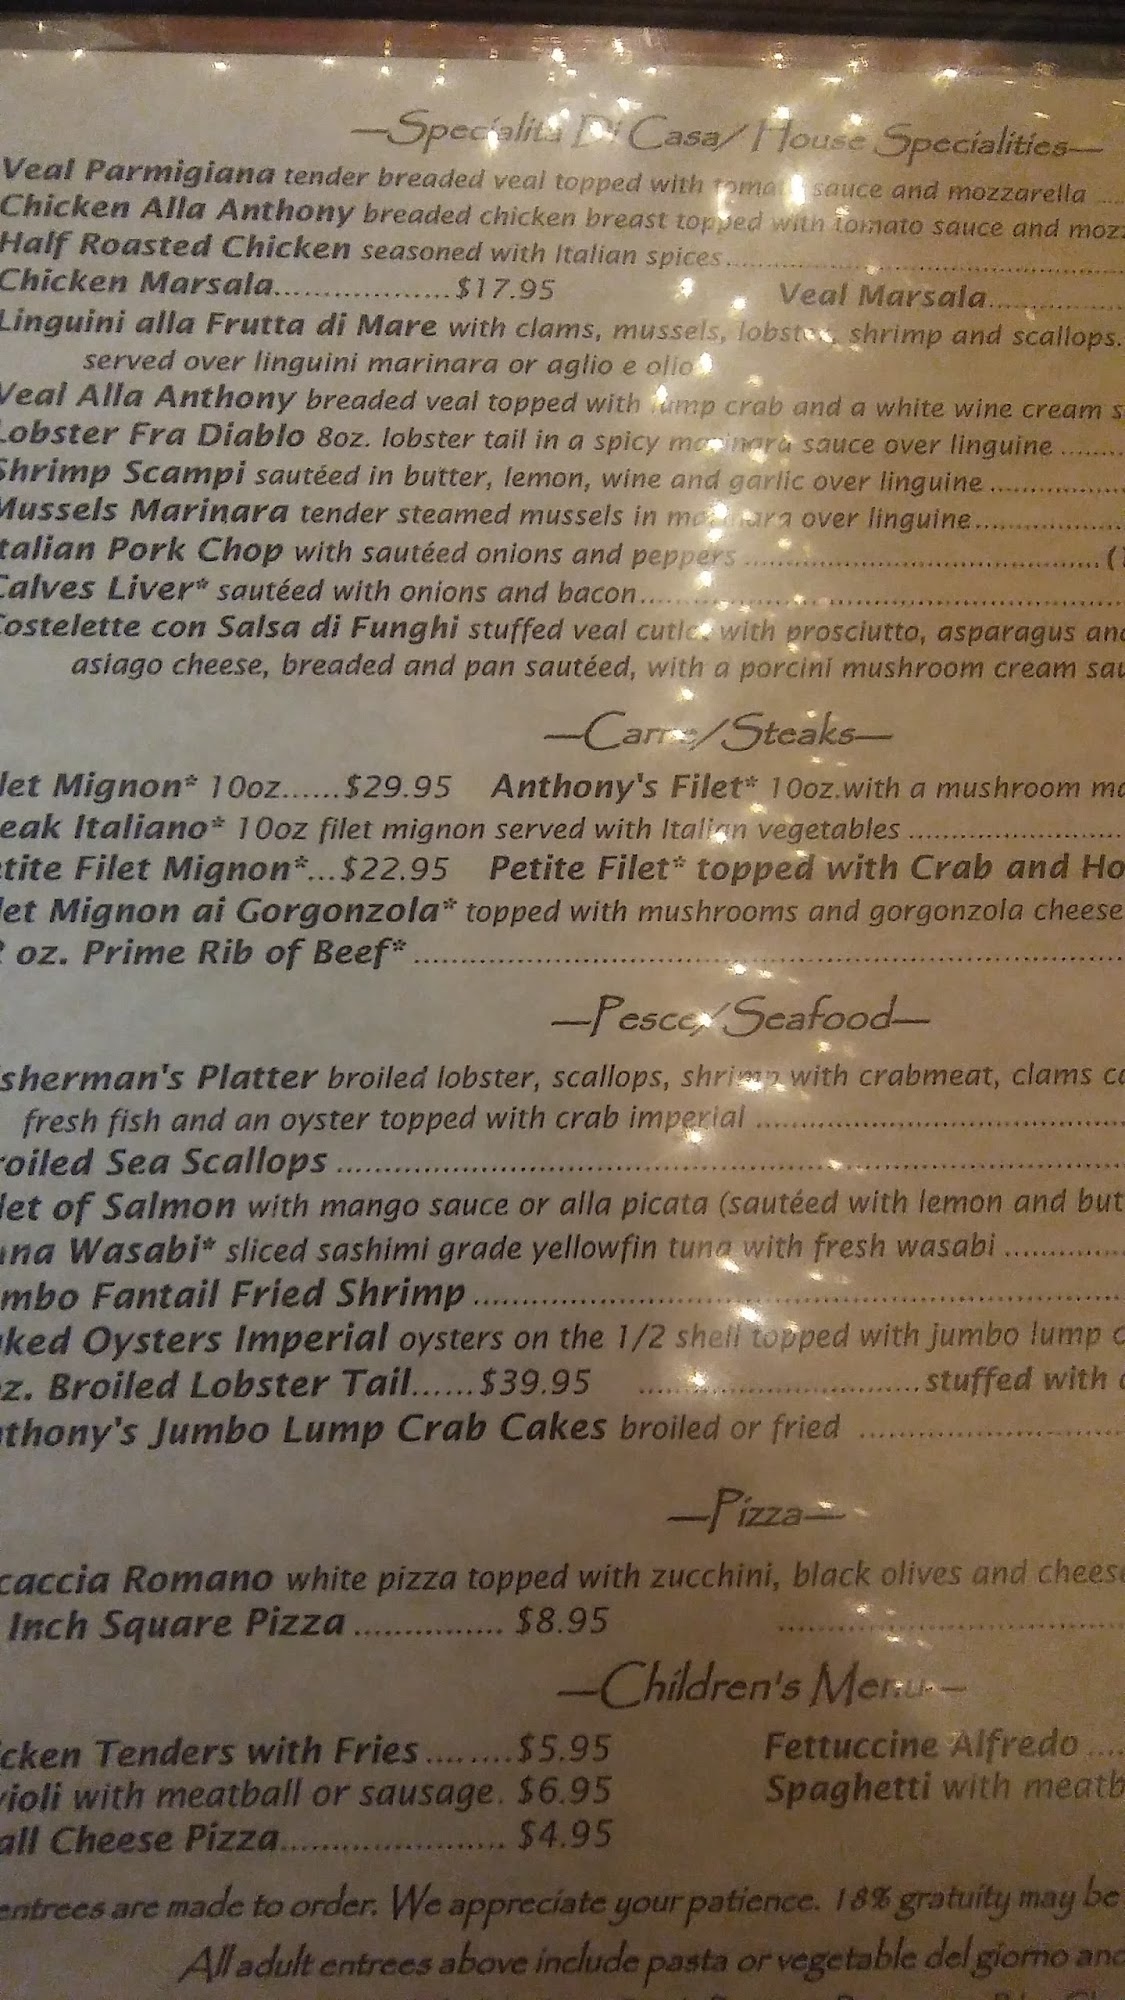 —Specialita Di Casa/House Specialities—
Veal Parmigiana tender breaded veal topped with tomato sauce and mozzarella ....
Chicken Alla Anthony breaded chicken breast topped with tomato sauce and
Half Roasted Chicken seasoned with Italian spices..........
Chicken Marsala...................$17.95 Veal Marsala..........
Linguini alla Frutta di Mare with clams, mussels, lobster, shrimp and scallops.
served over linguini marinara or aglio e olio
Veal Alla Anthony breaded veal topped with lump crab and a white wine cream
Lobster Fra Diablo 8oz. lobster tail in a spicy marinara sauce over linguine ........
Shrimp Scampi sautéed in butter, lemon, wine and garlic over linguine ..........
Mussels Marinara tender steamed mussels in marinara over linguine..........
talian Pork Chop with sautéed onions and peppers .......... (
Calves Liver* sautéed with onions and bacon..........
Costelette con Salsa di Funghi stuffed veal cutlet with prosciutto, asparagus and
asiago cheese, breaded and pan sautéed, with a porcini mushroom cream
—Carne/Steaks—
let Mignon* 10oz......$29.95 Anthony's Filet* 10oz.with a mushroom
eak Italiano* 10oz filet mignon served with Italian vegetables ..........
tite Filet Mignon*...$22.95 Petite Filet* topped with Crab and
let Mignon ai Gorgonzola* topped with mushrooms and gorgonzola cheese
oz. Prime Rib of Beef* ..........
—Pesce/Seafood—
sherman's Platter broiled lobster, scallops, shrimp with crabmeat, clams
fresh fish and an oyster topped with crab imperial ..........
roiled Sea Scallops ..........
let of Salmon with mango sauce or alla picata (sautéed with lemon and but
una Wasabi* sliced sashimi grade yellowfin tuna with fresh wasabi ..........
mbo Fantail Fried Shrimp ..........
ked Oysters Imperial oysters on the 1/2 shell topped with jumbo lump
z. Broiled Lobster Tail......$39.95 ..........stuffed with
thony's Jumbo Lump Crab Cakes broiled or fried ..........
—Pizza—
caccia Romano white pizza topped with zucchini, black olives and cheese
Inch Square Pizza ............... $8.95 ..........
—Children's Menu—
cken Tenders with Fries .........$5.95 Fettuccine Alfredo ....
violi with meatball or sausage. $6.95 Spaghetti with meatb
all Cheese Pizza...................... $4.95
entrees are made to order. We appreciate your patience. 18% gratuity may be
All adult entrees above include pasta or vegetable del giorno and